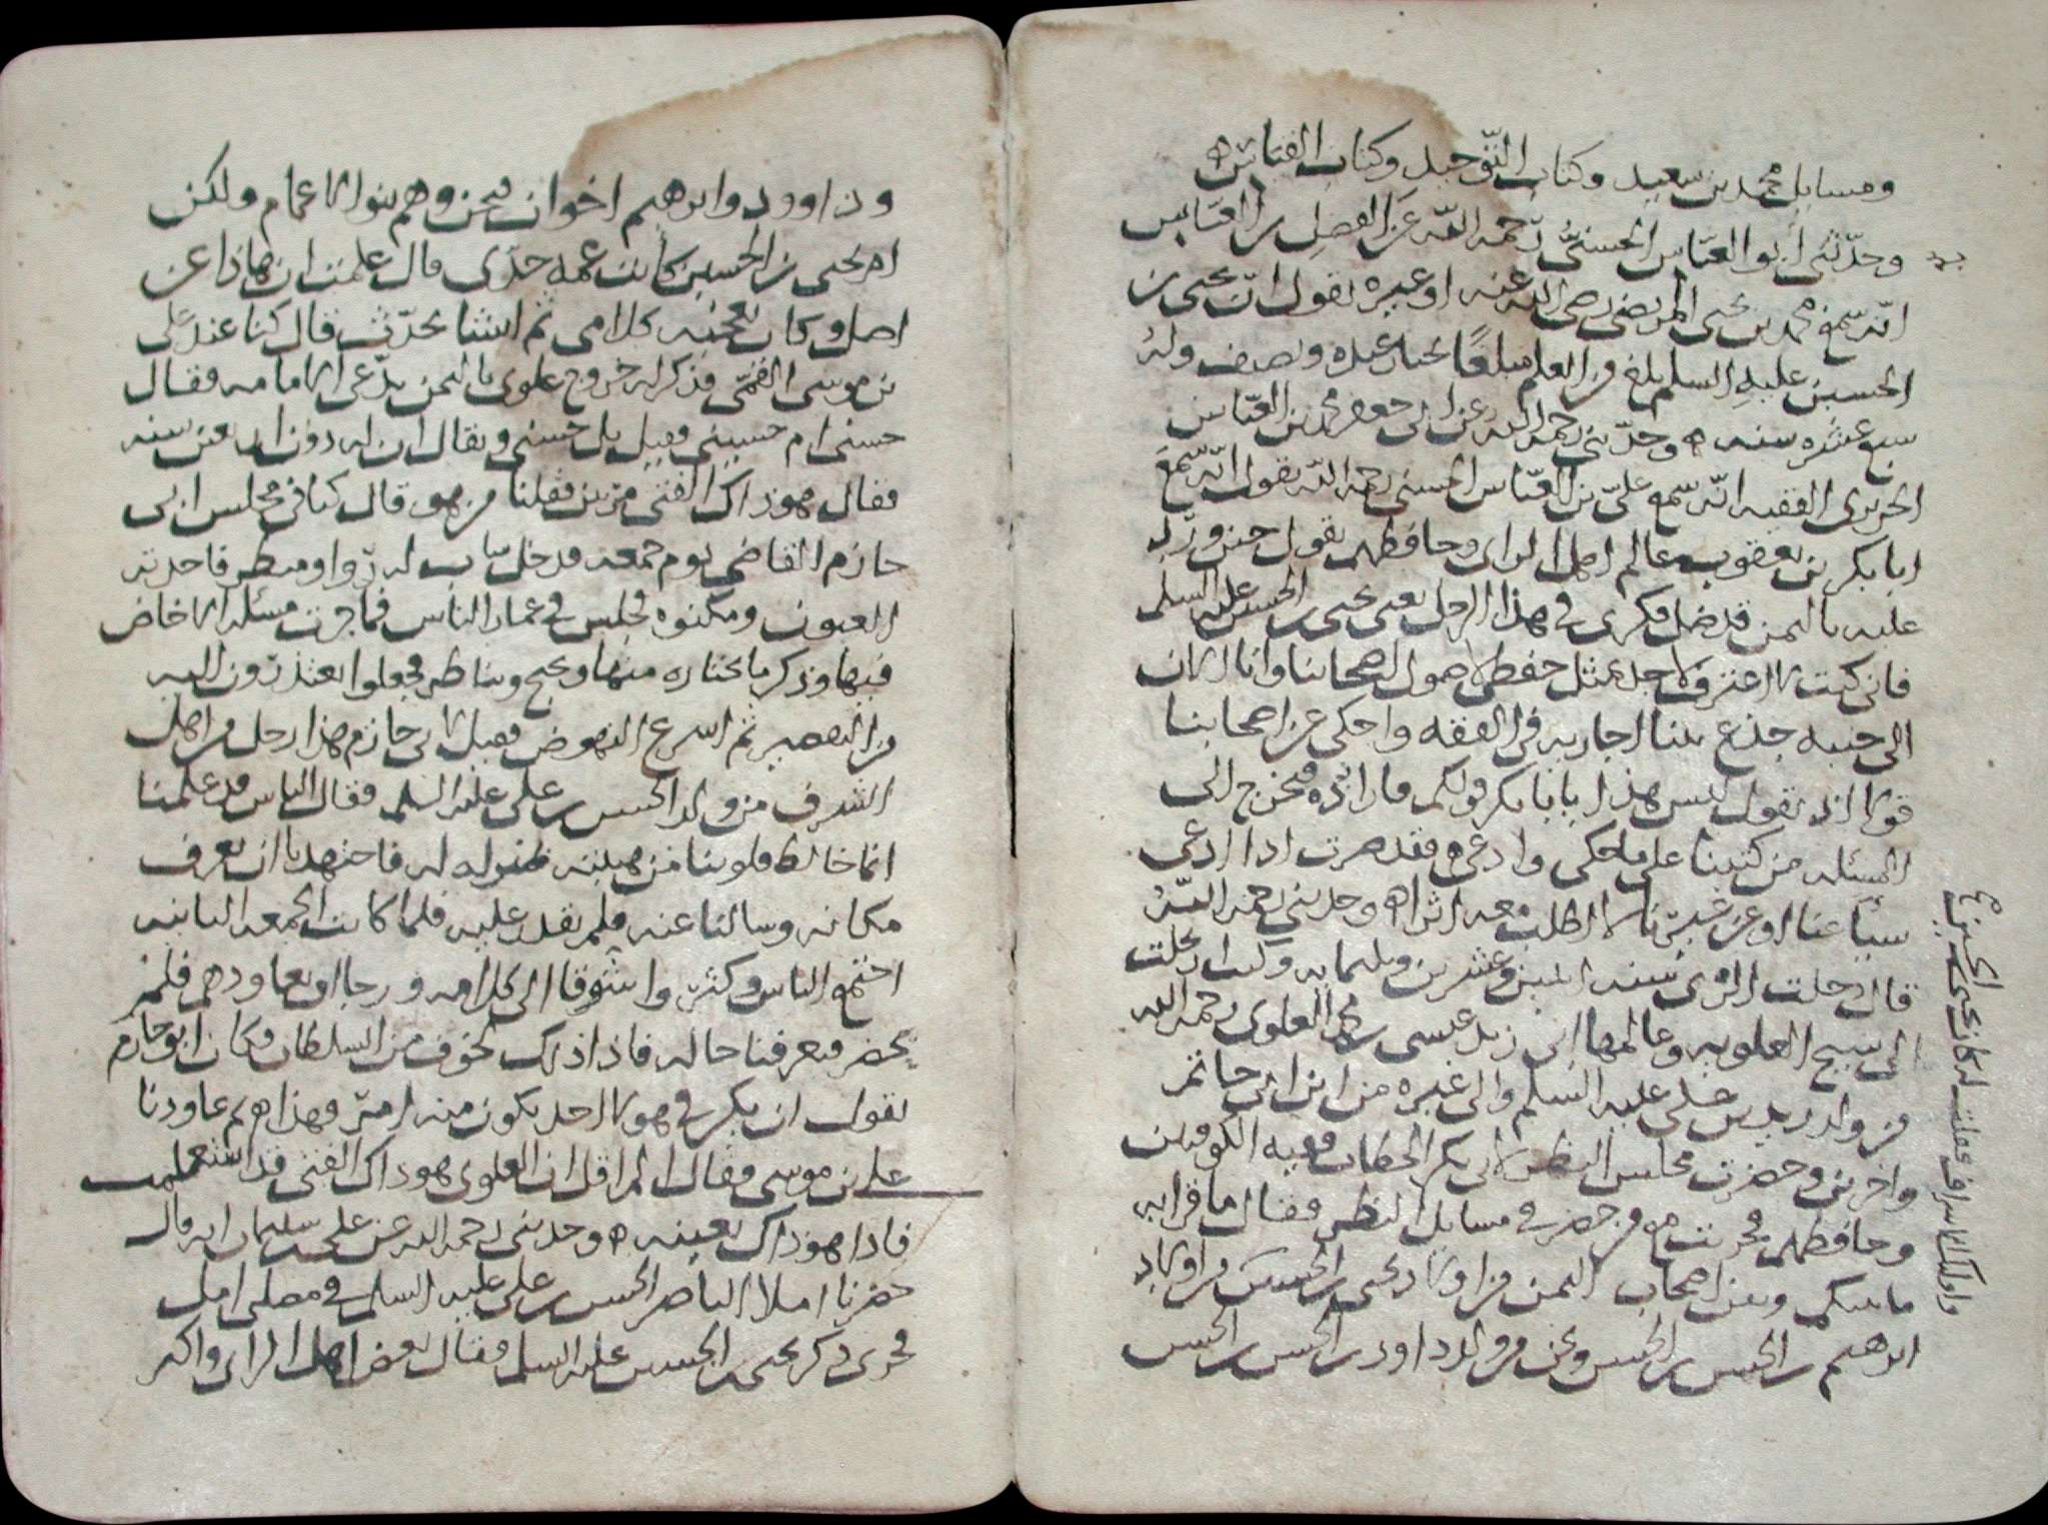 ومسايل محمد بن سعيد وكتاب التوحيد وكتاب القياس
وحدّثني أبو العبّاس الحسنيّ رحمه الله عن الفضل بن العباس
انه سمع محمد بن يحيى المرتضى رضي الله عنه او غيره يقول انّ يحيى بن
الحسين عليه السلم بلغ من العلم مبلغًا يختار عنده ويصنف وله
سبع عشره سنه ه وحدّثني رحمه الله عن ابي جعفر محمد بن العبّاس
الحريري الفقيه انّه سمع عليّ بن العبّاس الحسني رحمه الله يقول انّه سمع
ابا بكر بن يعقوب عالم اهل الراي وحافظهم يقول حين ورد
عليه باليمن قد ضل فكري في هذا الرجل يعني يحيى بن الحسين عليه السلم
فاني كنت لا اعترف لاحد بمثل حفظي لاصول اصحابنا وانا الان
الى جنبه جذع بينا اجاريه في الفقه واحكي عن اصحابنا
قولا اذ يقول ليس هذا يا با بكر قولكم فاراده فيخرج الي
المسئله من كتبنا على ما حكى وادعى فقد صرت اذا ادعى
شيا عنا او عن غيرنا لا اطلب معه اثرا ه وحدثني رحمه الله
قال دخلت الري سنه اثنين وعشرين وثلثمايه وكنت ارتحلت
الى شيخ العلويه وعالمها ابي زيد عيسى بن محمد العلوي رحمه الله
من ولد زيد بن علي عليه السلم والى غيره من ابن ابي حاتم
واخرين وحضرت مجلس النظر لابي بكر الخطاب فقيه الكوفيين
وحافظهم فجريت مع من حضر في مسايل النظر فقال ما قرابه
ما بينكم وبين اصحاب اليمن من اولاد يحيى بن الحسين من اولاد
ابرهيم بن الحسن بن الحسن ونحن من ولد داود بن الحسن بن الحسن
وداوود وابرهيم اخوان فنحن وهم بنوا الاعمام ولكن
ام يحيى بن الحسين كانت عمه جدّي قال علمت ان هاذا عن
اصل وكان يعجبه كلامي ثم انشا يحدّث قال كنا عند علي
بن موسى القمّي فذكر له خروج علوي باليمن يدّعي الامامه فقال
حسني ام حسيني فقيل بل حسني ويقال ان له دون اربعين سنه
فقال هو ذاك الفتى مرتين فقلنا من هو قال كنا في مجلس ابي
حازم القاضي يوم جمعه فدخل شاب له رُوا ومنظر فاخذته
العيون ومكنوه فجلس في غمار الناس فما جرت مسئله الا خاض
فيها وذكر ما يختاره منها ويحتج ويناظر فجعلوا يعتذرون اليه
من التقصير ثم اسرع النهوض فقيل لابي حازم هذا رجل من اهل
الشرف من ولد الحسن بن علي عليه السلم فقال الناس قد علمنا
انما خالط قلوبنا من هيبته لمنزله له فاجتهدنا ان نعرف
مكانه وسالنا عنه فلم نقدر عليه فلما كانت الجمعه الثانيه
اجتمع الناس وكثروا شوقا الى كلامه ورجا ان يعاودهم فلم
يحضر فتعرفنا حاله فاذا ذلك لخوف من السلطان وكان ابو حازم
يقول ان يكن في هولا احد يكون منه امر فهذا هو ثم عاودنا
علي بن موسى فقال الم اقل ان العلوي هو ذاك الفتى قد استعلمت
فاذا هو ذاك بعينه ه وحدثني رحمه الله عن علي بن سليمان انه قال
حضرنا املا الناصر الحسن بن علي عليه السلم في مصلى امل
فجرى ذكر يحيى بن الحسين عليه السلم فقال بعض اهل الراي واكثر